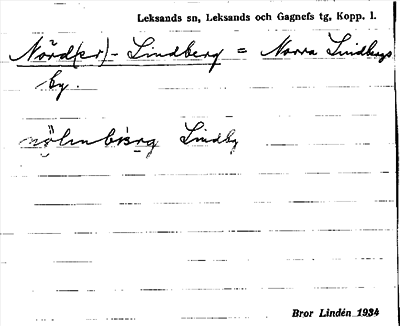 Leksands sn, Leksands och Gagnefs tg, Kopp. l.
Nörd(er)- Lindberg = Norra Lindbergs
by.
Lindbg
Bror Lindén 1934